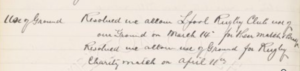 Use of Ground Resolved we allow L'pool Rugby Club use of
our Ground on March 14th for their match
Resolved we allow use of Ground for Rugby
Charity match on April 11th